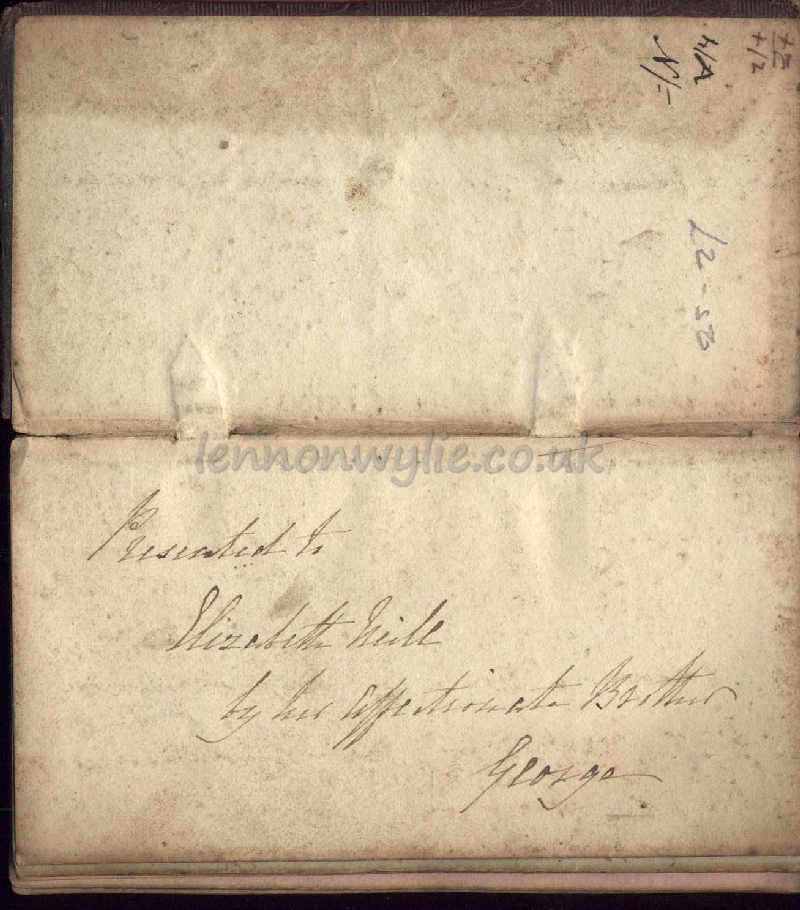 lennonwylie.co.uk
Presented to
Elizabeth Neill
by her affectionate Brother
George